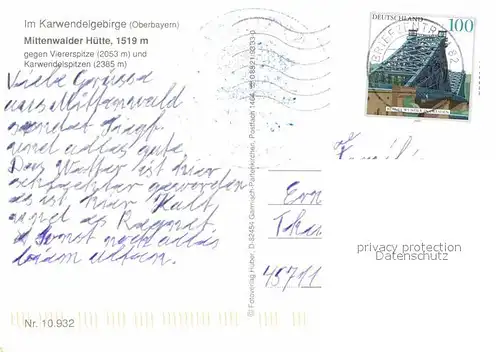 Im Karwendelgebirge (Oberbayern)
Mittenwalder Hütte, 1519 m
gegen Viererspitze (2053 m) und
Karwendelspitzen (2385 m)
Viele Grüsse
aus Mittenwald
sendet
und alles gute
Das Wetter ist hier
geworden
es ist hier Kalt,
und es Regnet.
Sonst noch alles
beim altem.
Nr. 10.932
© Fotoverlag Huber, D-82454 Garmisch-Partenkirchen, Postfach 1444
DEUTSCHLAND
100
BRIEFZENTRUM 82
45711
privacy protection
Datenschutz